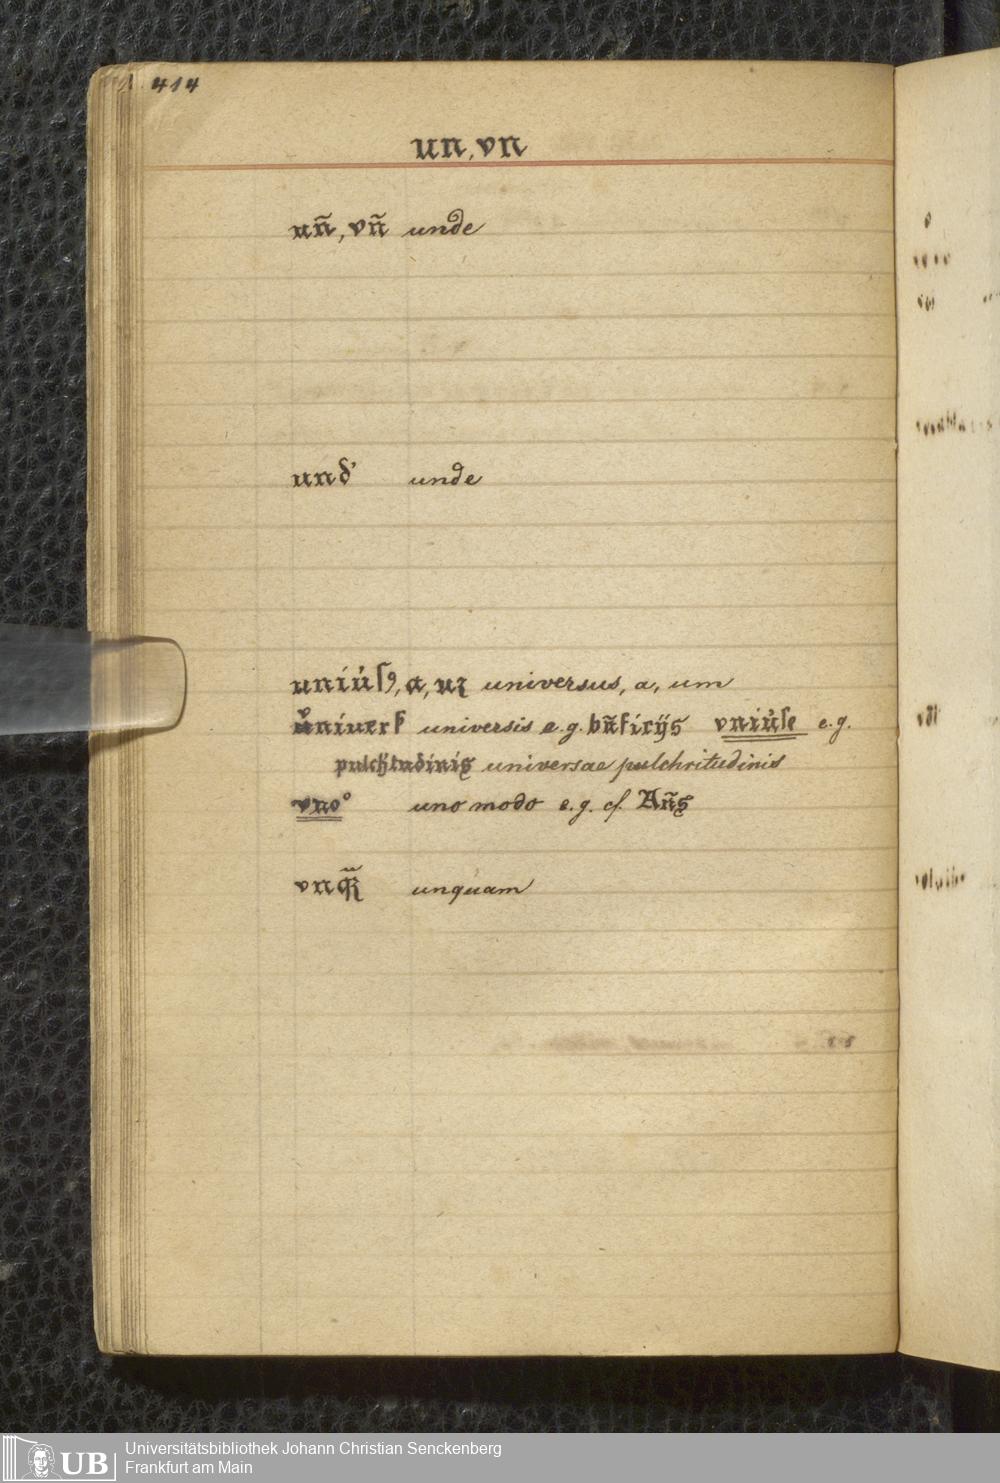 414
un, vn
uñ, vñ unde
unđ’ unde
uniu̓ſꝯ, a, uꝫ universus, a, um
univerſ universis e.g. vniu̓ſe e.g.
universae pulchritudinis
vno° uno modo e.g. cf. Añς
vnq̃ unquam
Universitätsbibliothek Johann Christian Senckenberg
UB Frankfurt am Main